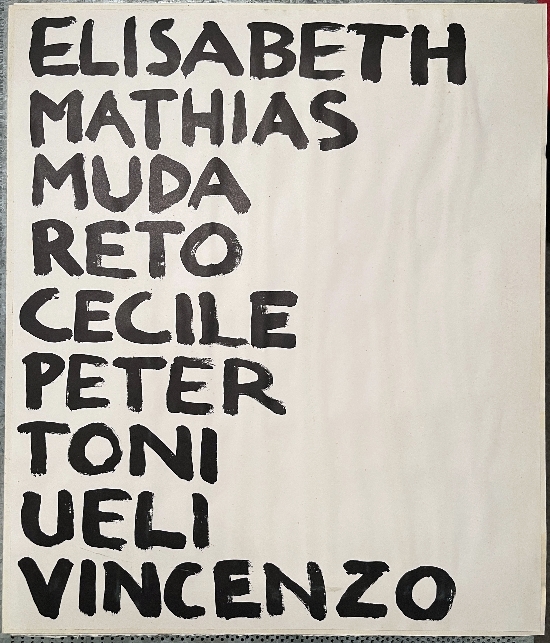 ELISABETH
MATHIAS
MUDA
RETO
CECILE
PETER
TONI
UELI
VINCENZO